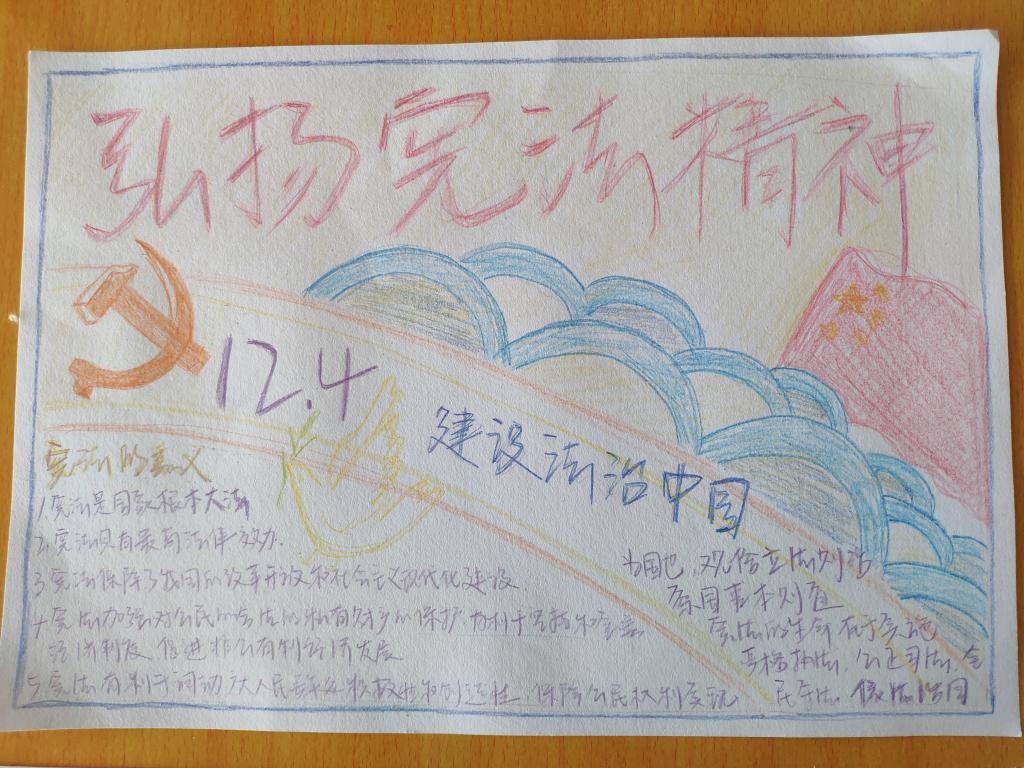 弘扬宪法精神
12.4
建设法治中国
宪法的意义
1.宪法是国家根本大法
2.宪法具有最高法律效力.
3.宪法保障了我国的改革开放和社会主义现代化建设.
4.宪法加强对公民的合法的私有财产的保护.有利于坚持和完善
经济制度 促进非公有制经济发展
5.宪法有利于调动广大人民群众积极性和创造性.保障公民权利实现
当国也,观俗立法则治
察国事本则宜
宪法的生命在于实施
严格执法,公正司法,全
民守法.依法治国